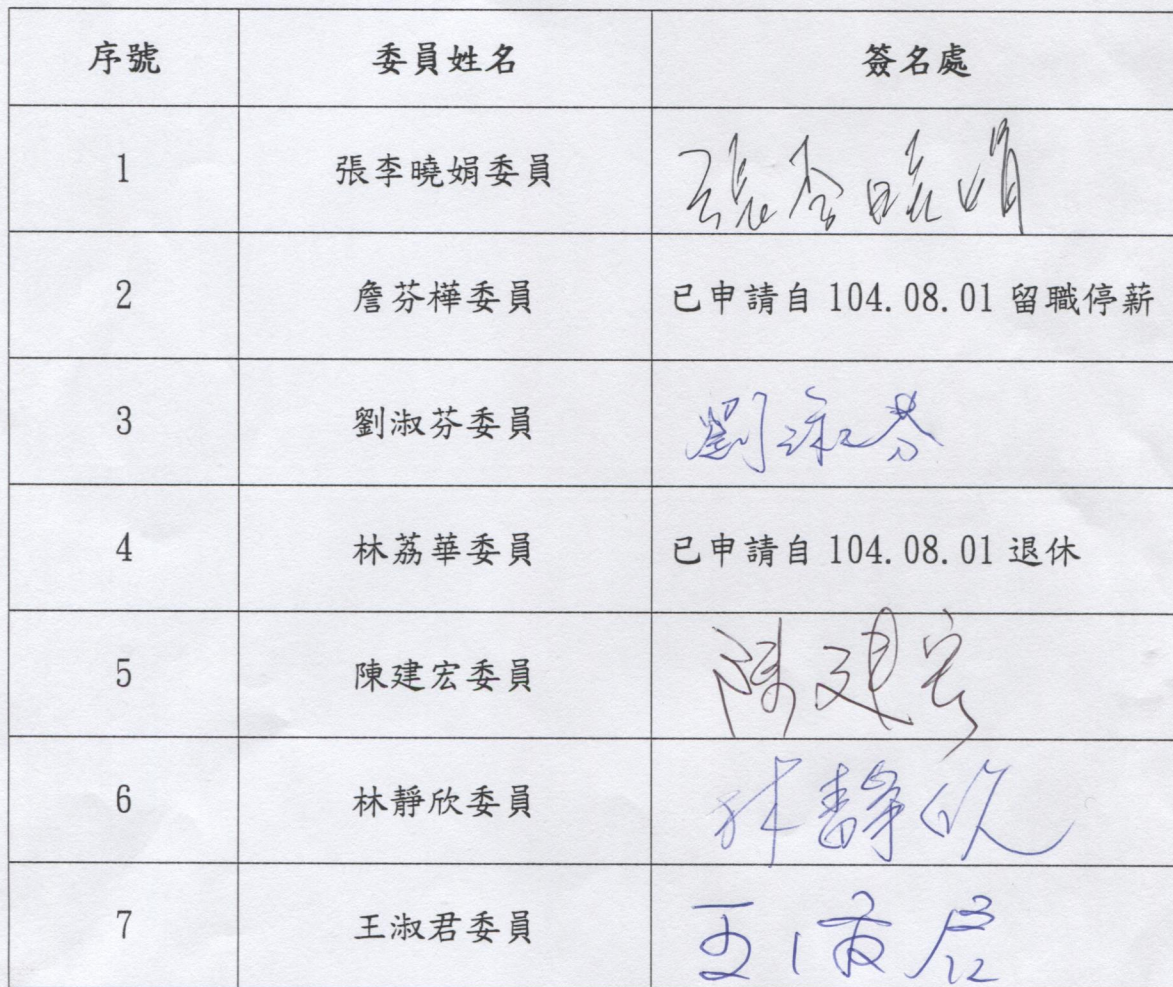 序號 委員姓名 簽名處
1 張李曉娟委員 張李曉娟
2 詹芬樺委員 已申請自 104.08.01 留職停薪
3 劉淑芬委員 劉淑芬
4 林荔華委員 已申請自 104.08.01 退休
5 陳建宏委員 陳建宏
6 林靜欣委員 林靜欣
7 王淑君委員 王淑君